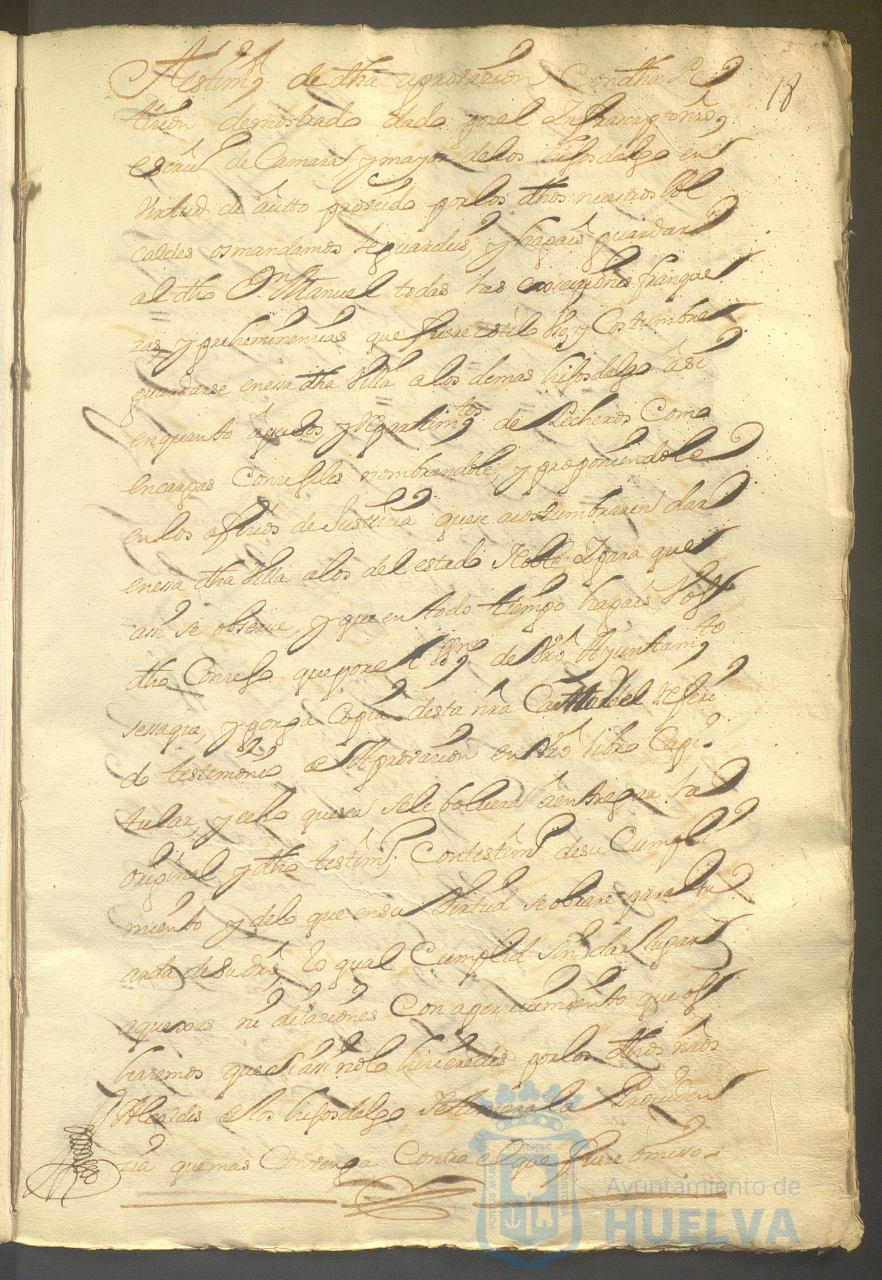 18
Testim.º de dha aprovazion Con dha Pe
tizion demostrado dado por el Infrascripto nro
escriv.º de Camara, y mayor de los hijosdalgo en
virtud de autto proveido por los dhos nuestros Al
caldes os mandamos le guardeis, y hagais guardar
al dho D.n Manuel todas las exempziones franque
zas, y preheminencias que fuere estilo uso y Costumbre
guardarse en essa dha Villa a los demas hijosdalgo asi
en quanto a pechos, y repartim.tos de Pecheros Como
en cargas Conzejiles nombrandole, y proponiendole
en los ofizios de Justizia que se acostumbraren dar
en essa dha Villa a los del estado Noble, Y para que
assi se observe, y que en todo tiempo hagais Vos
dho Conzejo que por el ess.no de vro Ayuntam.to
se saque, y ponga Copia desta nra Carta del referi
do testimonio de Aprovazion en vro libro Capi
tular, y echo que sea se le bolvera a entregar la
original, y dho testim.º Con testim.º de su Cumpli
miento y de lo que en su Virtud se obrare para en
arda de su dro, lo qual Cumplid sin dar lugar
a quexas ni dilaziones Con aperzivimiento que os
haremos que si assi no lo hiziereis por los dhos nros
Alcaldes de los hijosdalgo se tomara la Providen
zia que mas Convenga Contra el que fuere omiso
Ayuntamiento de
HUELVA